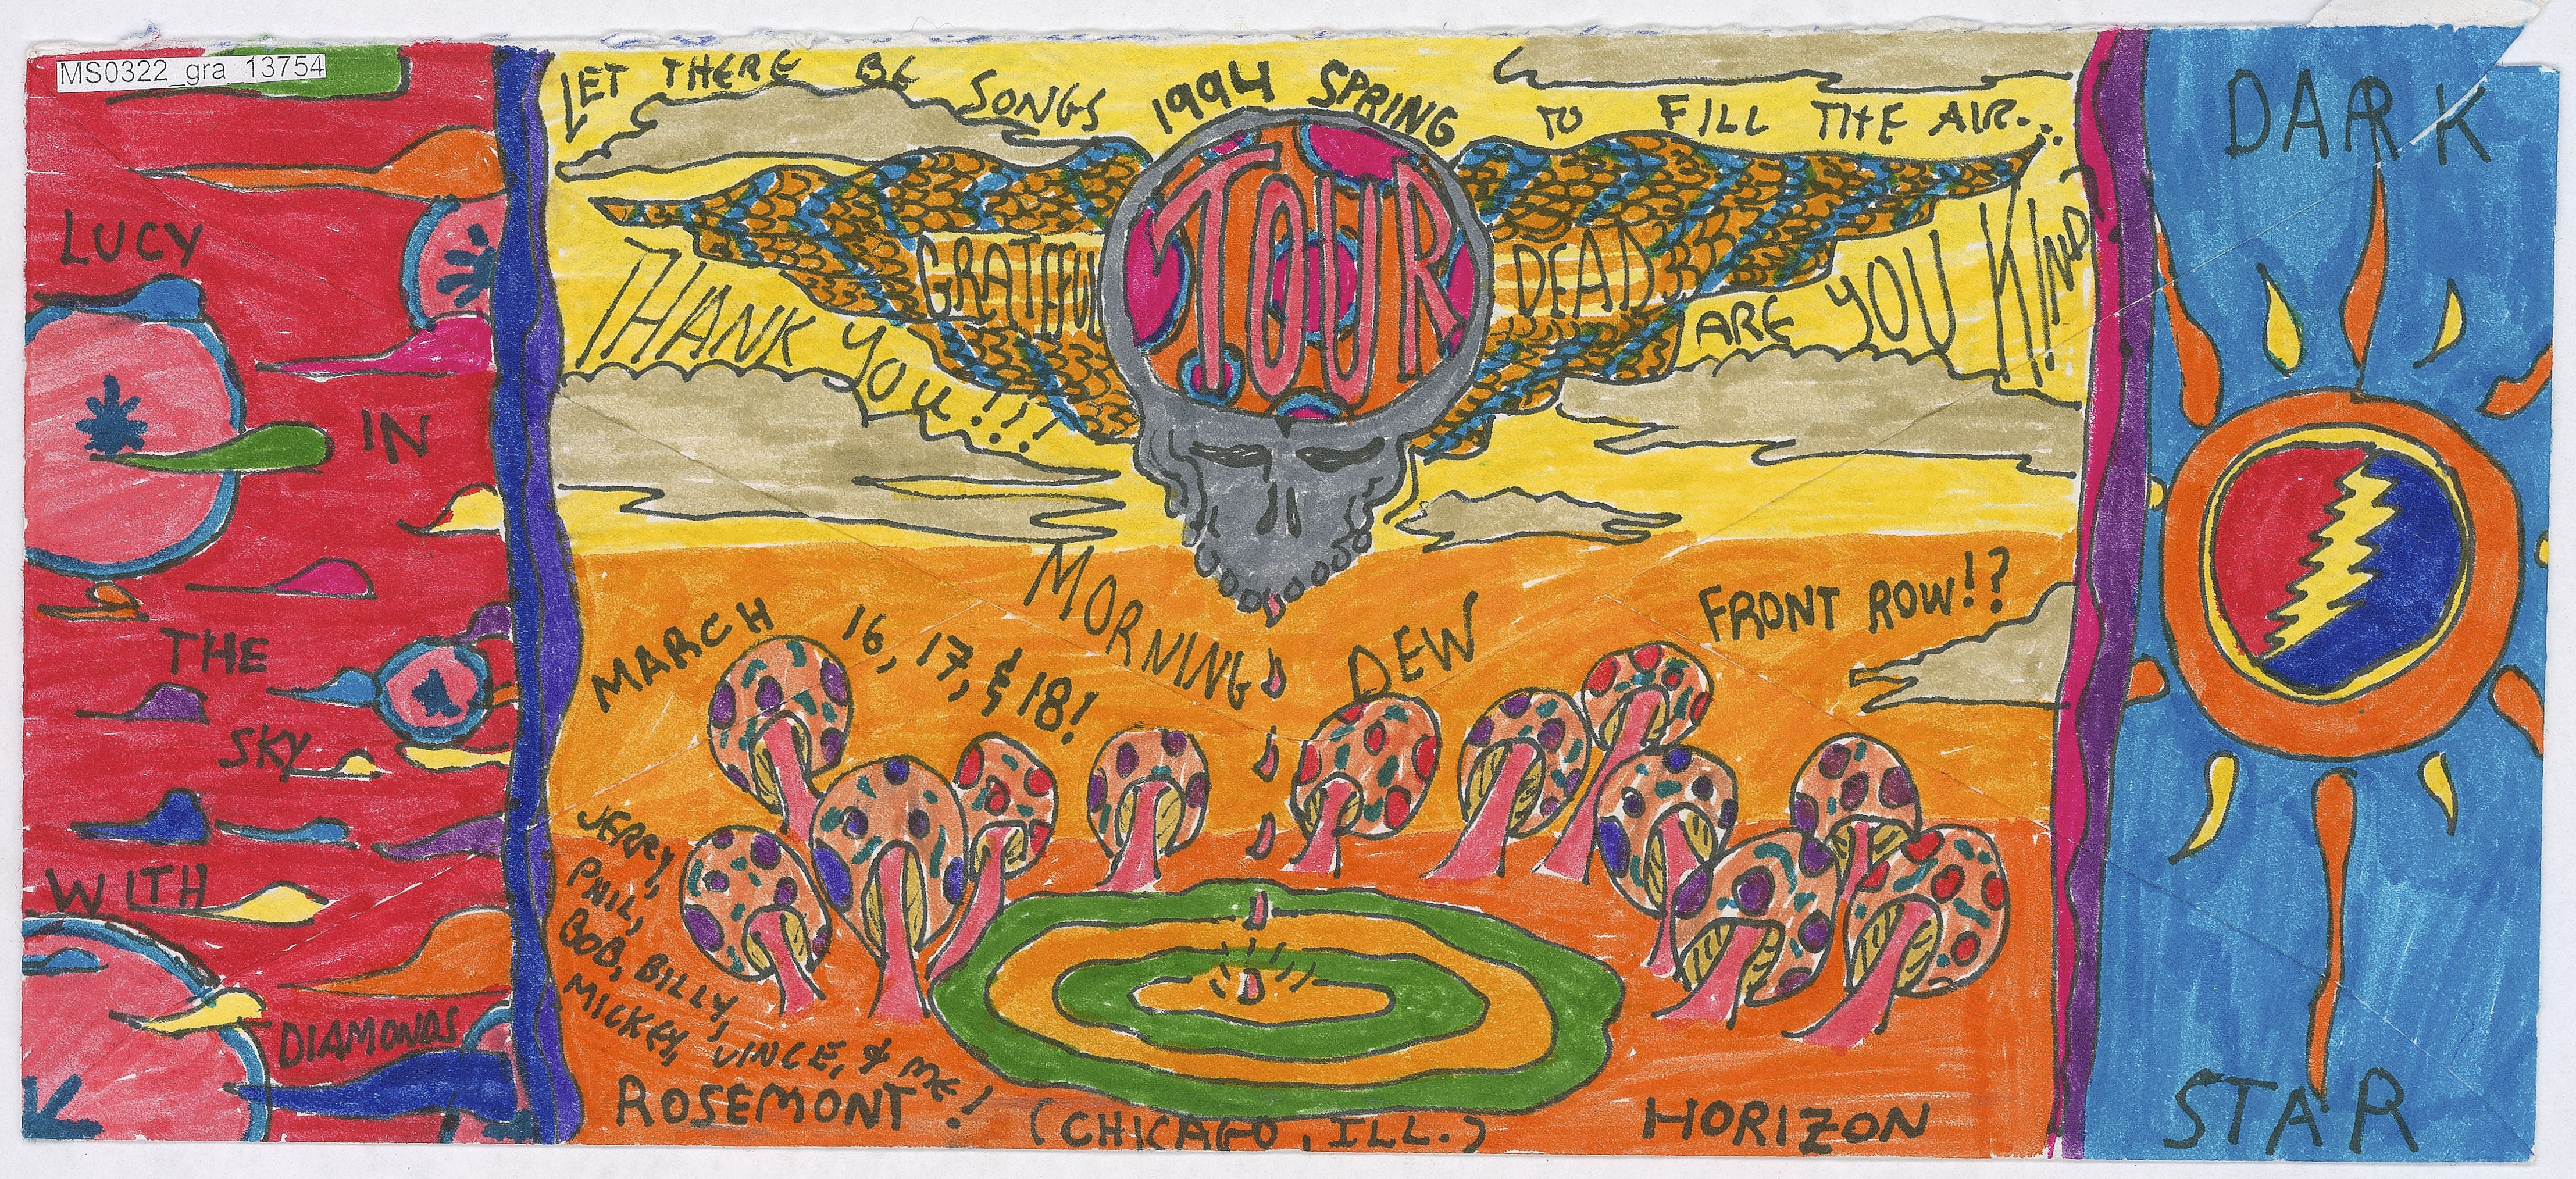 MS0322_gra_13754
LUCY
IN
THE
SKY
WITH
DIAMONDS
LET THERE BE SONGS TO FILL THE AIR...
1994 SPRING
TOUR
GRATEFUL DEAD
THANK YOU!!!
ARE YOU KIND?
MORNING DEW
MARCH 16, 17, & 18!
FRONT ROW!?
JERRY,
PHIL,
BOB, BILLY,
MICKEY, VINCE, & ME!
ROSEMONT
(CHICAGO, ILL.)
HORIZON
DARK
STAR